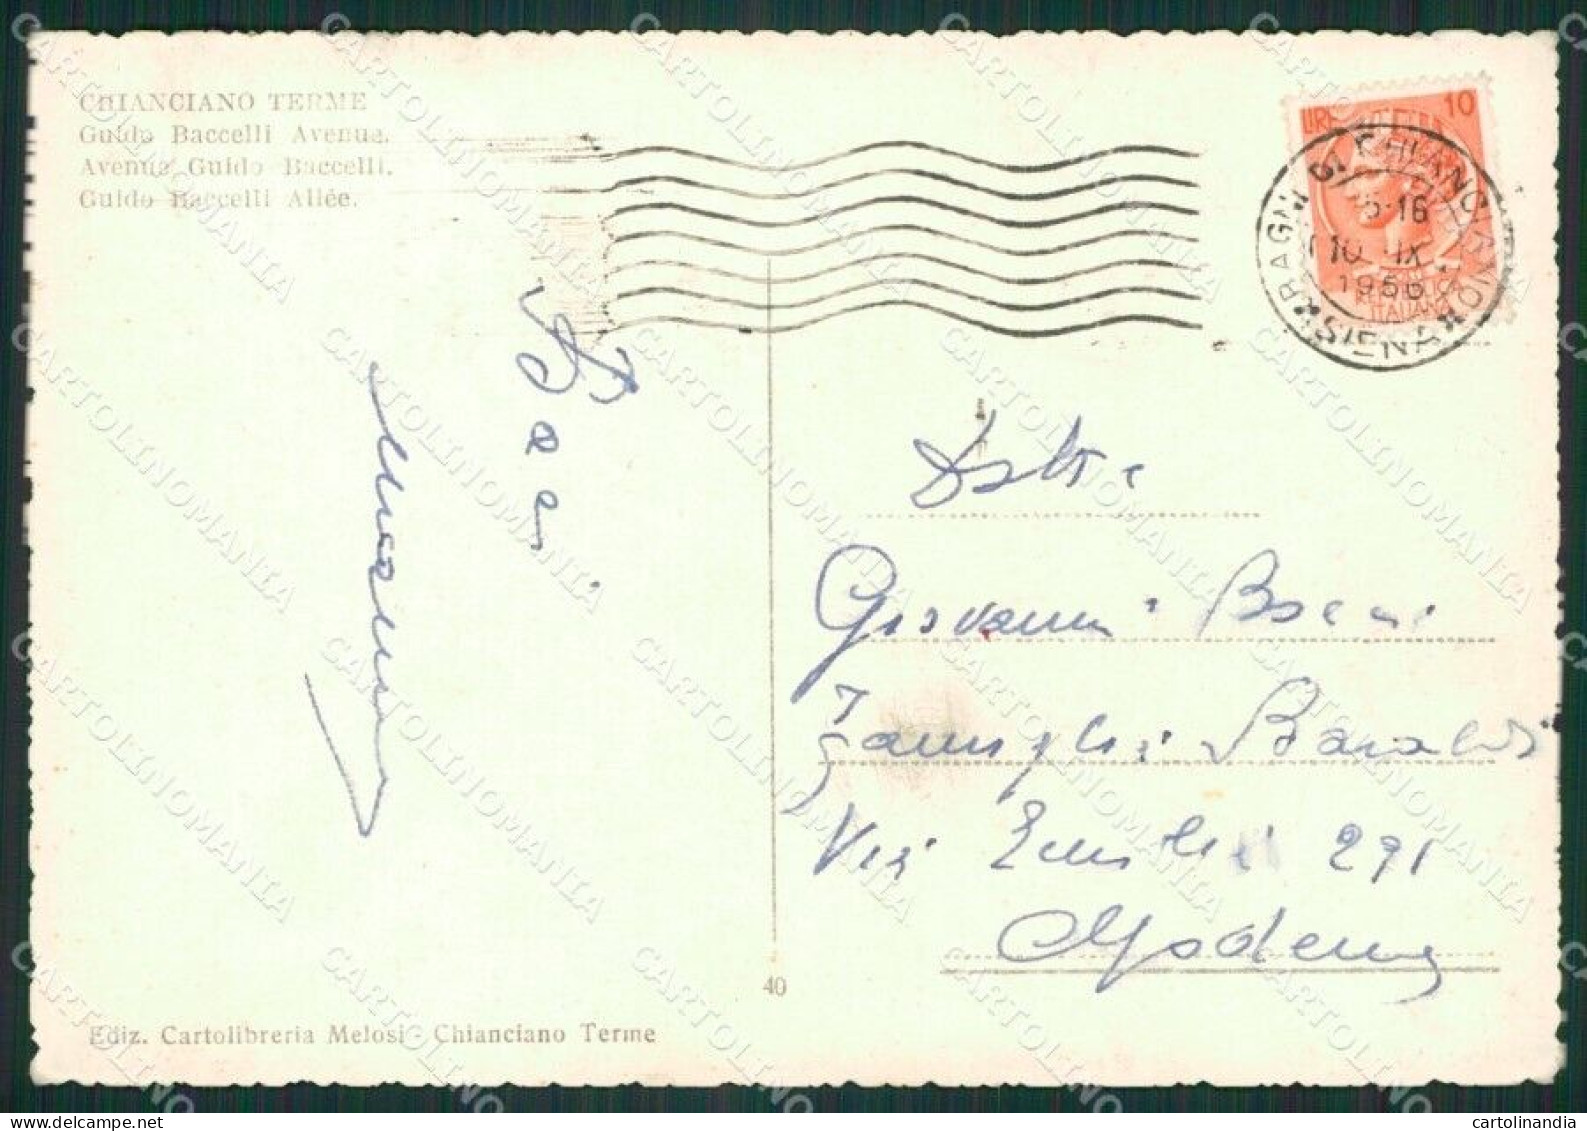 CHIANCIANO TERME
Guido Baccelli Avenue.
Avenue Guido Baccelli.
Guido Baccelli Allée.
LIRE 10
BAGNI DI CHIANCIANO
16
10 IX
1956
*SIENA*
ITALIANA
Baci
Giovanni
Famiglia Baraldi
Via Emilia 291
Modena
40
Ediz. Cartolibreria Melosi - Chianciano Terme
CARTOLINOMANIA
cartolinandia